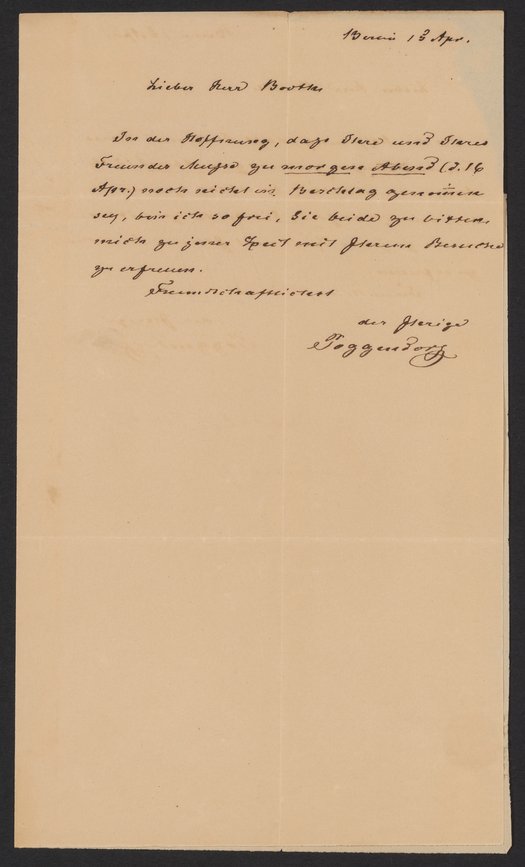 Berlin 15 Apr.
Lieber Herr Booth
In der Hoffnung, daß Ihre und Ihres
Freundes Muße zu morgen Abend (d. 16
Apr.) noch nicht in Beschlag genom̄en
sey, bin ich so frei, Sie beide zu bitten,
mich zu jener Zeit mit Ihrem Besuche
zu erfreuen.
Freundschaftlichst
der Ihrige
Poggendorff